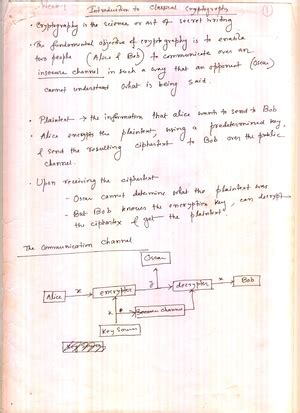 Week-1
Introduction to Classical Cryptography
1
• Cryptography is the science or art of secret writing
• The fundamental objective of cryptography is to enable
two people (Alice & Bob) to communicate over an
insecure channel in such a way that an opponent (Oscar)
cannot understand what is being said.
• Plaintext → the information that alice wants to send to Bob
• Alice encrypts the plaintext, using a predetermined key,
& send the resulting ciphertext to Bob over the public
channel.
• Upon receiving the ciphertext
- Oscar cannot determine what the plaintext was
- But Bob knows the encryption key, can decrypt
the ciphertext & get the plaintext
The Communication channel
Oscar
Alice
x
encrypter
y
decrypter
x
Bob
k
Secure channel
Key Source